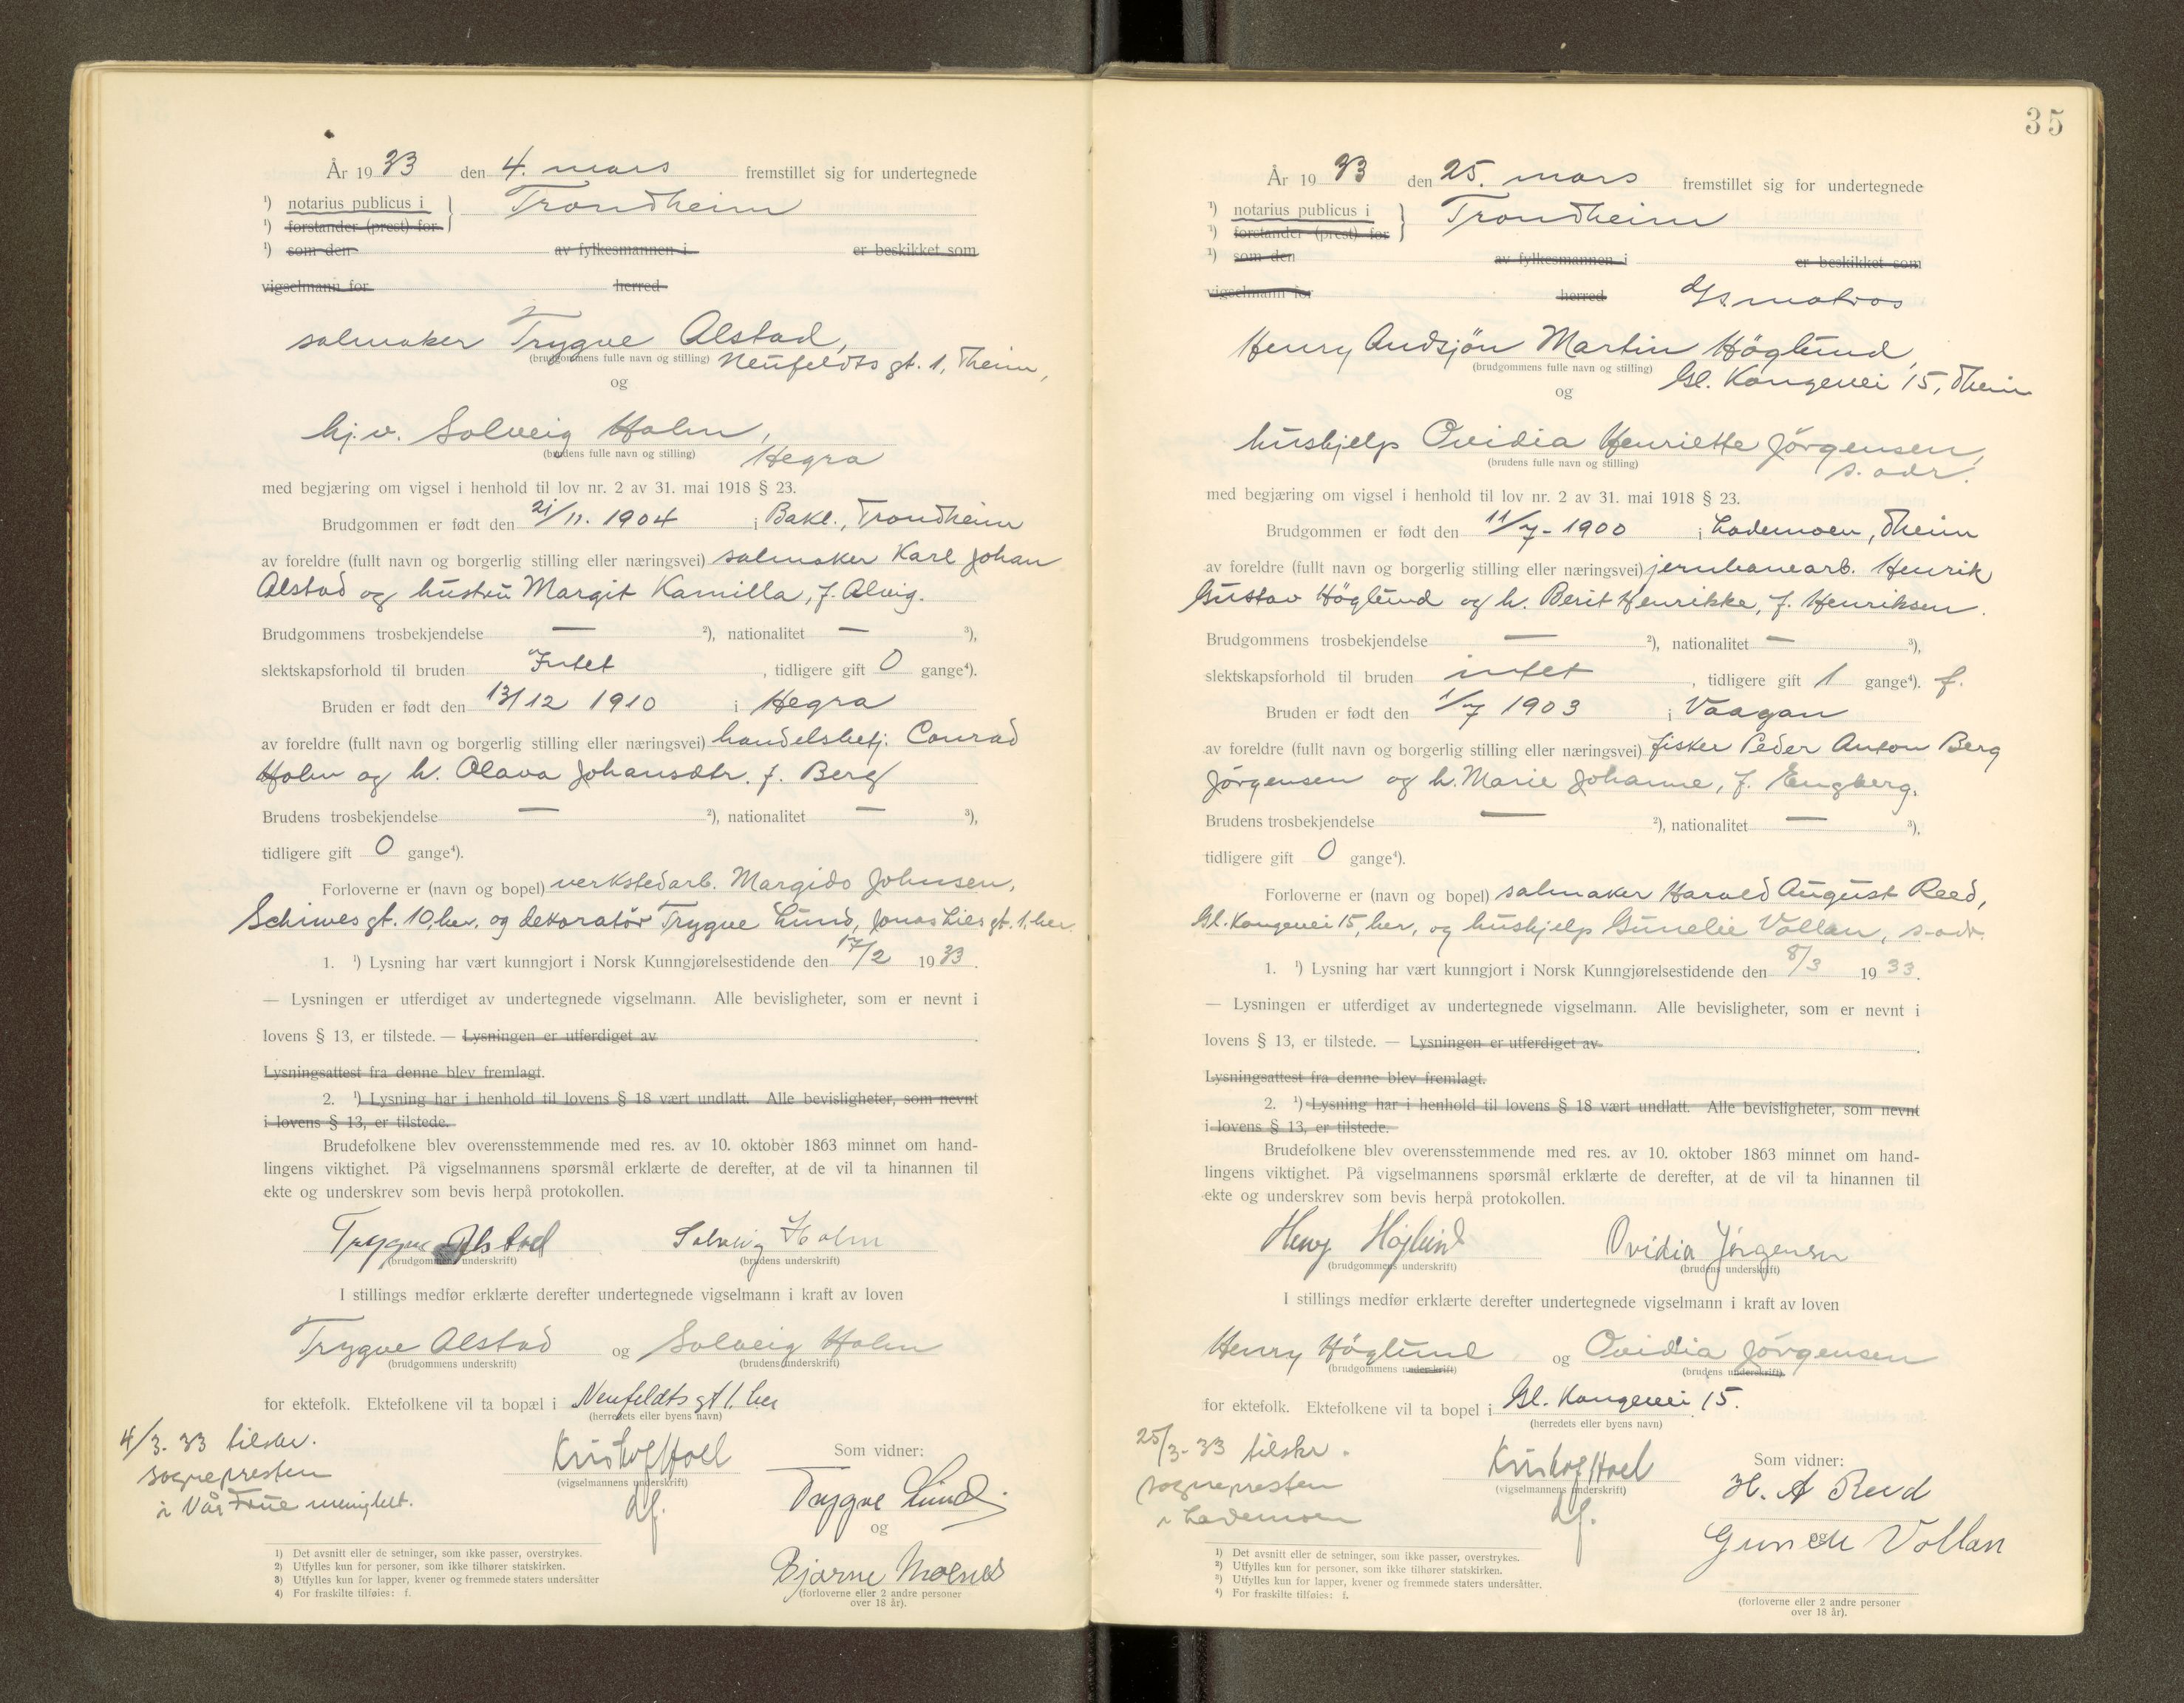 År 1933 den 4. mars fremstillet sig for undertegnede
¹) notarius publicus i } Trondheim
¹) forstander (prest) for
¹) som den av fylkesmannen i er beskikket som
vigselmann for herred
salmaker Trygve Alstad,
(brudgommens fulle navn og stilling) Neufeldts gt. 1, Theim,
og
hj.v. Solveig Holm,
(brudens fulle navn og stilling) Hegra
med begjæring om vigsel i henhold til lov nr. 2 av 31. mai 1918 § 23.
Brudgommen er født den 21/11. 1904 i Bakl., Trondheim
av foreldre (fullt navn og borgerlig stilling eller næringsvei) salmaker Karl Johan
Alstad og hustru Margit Kamilla, f. Alvig.
Brudgommens trosbekjendelse — ²), nationalitet — ³),
slektskapsforhold til bruden Intet, tidligere gift 0 gange⁴).
Bruden er født den 13/12 1910 i Hegra
av foreldre (fullt navn og borgerlig stilling eller næringsvei) handelsbetj. Conrad
Holm og h. Olava Johansdtr. f. Berg
Brudens trosbekjendelse — ²), nationalitet — ³),
tidligere gift 0 gange⁴).
Forloverne er (navn og bopel) verkstedarb. Margido Johnsen,
Schiwes gt. 10, her, og dekoratør Trygve Lund, Jonas Lies gt. 1, her.
1. ¹) Lysning har vært kunngjort i Norsk Kunngjørelsestidende den 17/2 1933.
— Lysningen er utferdiget av undertegnede vigselmann. Alle bevisligheter, som er nevnt i
lovens § 13, er tilstede. — Lysningen er utferdiget av
Lysningsattest fra denne blev fremlagt.
2. ¹) Lysning har i henhold til lovens § 18 vært undlatt. Alle bevisligheter, som nevnt
i lovens § 13, er tilstede.
Brudefolkene blev overensstemmende med res. av 10. oktober 1863 minnet om hand-
lingens viktighet. På vigselmannens spørsmål erklærte de derefter, at de vil ta hinannen til
ekte og underskrev som bevis herpå protokollen.
Trygve Alstad Solveig Holm
(brudgommens underskrift) (brudens underskrift)
I stillings medfør erklærte derefter undertegnede vigselmann i kraft av loven
Trygve Alstad og Solveig Holm
(brudgommens underskrift) (brudens underskrift)
for ektefolk. Ektefolkene vil ta bopæl i Neufeldts gt 1. her
(herredets eller byens navn)
4/3. 33 tilskr.
sognepresten
i Vår Frue menighet.
Kristof Hoel
(vigselmannens underskrift)
df.
Som vidner:
Trygve Lund
og
Bjarne Moenes
(forloverne eller 2 andre personer
over 18 år).
1) Det avsnitt eller de setninger, som ikke passer, overstrykes.
2) Utfylles kun for personer, som ikke tilhører statskirken.
3) Utfylles kun for lapper, kvener og fremmede staters undersåtter
4) For fraskilte tilføies: f.
35
År 1933 den 25. mars fremstillet sig for undertegnede
¹) notarius publicus i } Trondheim
¹) forstander (prest) for
¹) som den av fylkesmannen i er beskikket som
vigselmann for herred d/s matros
Henry Andsjön Martin Höglund,
(brudgommens fulle navn og stilling) Gl. Kongevei 15, Theim
og
hushjelp Ovidia Henriette Jörgensen,
(brudens fulle navn og stilling) s. adr.
med begjæring om vigsel i henhold til lov nr. 2 av 31. mai 1918 § 23.
Brudgommen er født den 11/7 - 1900 i Lademoen, Theim
av foreldre (fullt navn og borgerlig stilling eller næringsvei) jernbanearb. Henrik
Gustav Höglund og h. Berit Henrikke, f. Henriksen.
Brudgommens trosbekjendelse — ²), nationalitet — ³),
slektskapsforhold til bruden intet, tidligere gift 1 gange⁴). f.
Bruden er født den 1/7 1903 i Vaagan
av foreldre (fullt navn og borgerlig stilling eller næringsvei) fisker Peder Anton Berg
Jörgensen og h. Marie Johanne, f. Engberg.
Brudens trosbekjendelse — ²), nationalitet — ³),
tidligere gift 0 gange⁴).
Forloverne er (navn og bopel) salmaker Harald August Reed,
Gl. Kongevei 15, her, og hushjelp Gunelie Vollan, s. adr.
1. ¹) Lysning har vært kunngjort i Norsk Kunngjørelsestidende den 8/3 1933.
— Lysningen er utferdiget av undertegnede vigselmann. Alle bevisligheter, som er nevnt i
lovens § 13, er tilstede. — Lysningen er utferdiget av
Lysningsattest fra denne blev fremlagt.
2. ¹) Lysning har i henhold til lovens § 18 vært undlatt. Alle bevisligheter, som nevnt
i lovens § 13, er tilstede.
Brudefolkene blev overensstemmende med res. av 10. oktober 1863 minnet om hand-
lingens viktighet. På vigselmannens spørsmål erklærte de derefter, at de vil ta hinannen til
ekte og underskrev som bevis herpå protokollen.
Henry Höglund Ovidia Jörgensen
(brudgommens underskrift) (brudens underskrift)
I stillings medfør erklærte derefter undertegnede vigselmann i kraft av loven
Henry Höglund og Ovidia Jörgensen
(brudgommens underskrift) (brudens underskrift)
for ektefolk. Ektefolkene vil ta bopel i Gl. Kongevei 15.
(herredets eller byens navn)
25/3 - 33 tilskr.
sognepresten
i Lademoen
Kristof Hoel
(vigselmannens underskrift)
df.
Som vidner:
H. A Reed
og
Gunelie Vollan
(forloverne eller 2 andre personer
over 18 år).
1) Det avsnitt eller de setninger, som ikke passer, overstrykes.
2) Utfylles kun for personer, som ikke tilhører statskirken.
3) Utfylles kun for lapper, kvener og fremmede staters undersåtter.
4) For fraskilte tilføies: f.